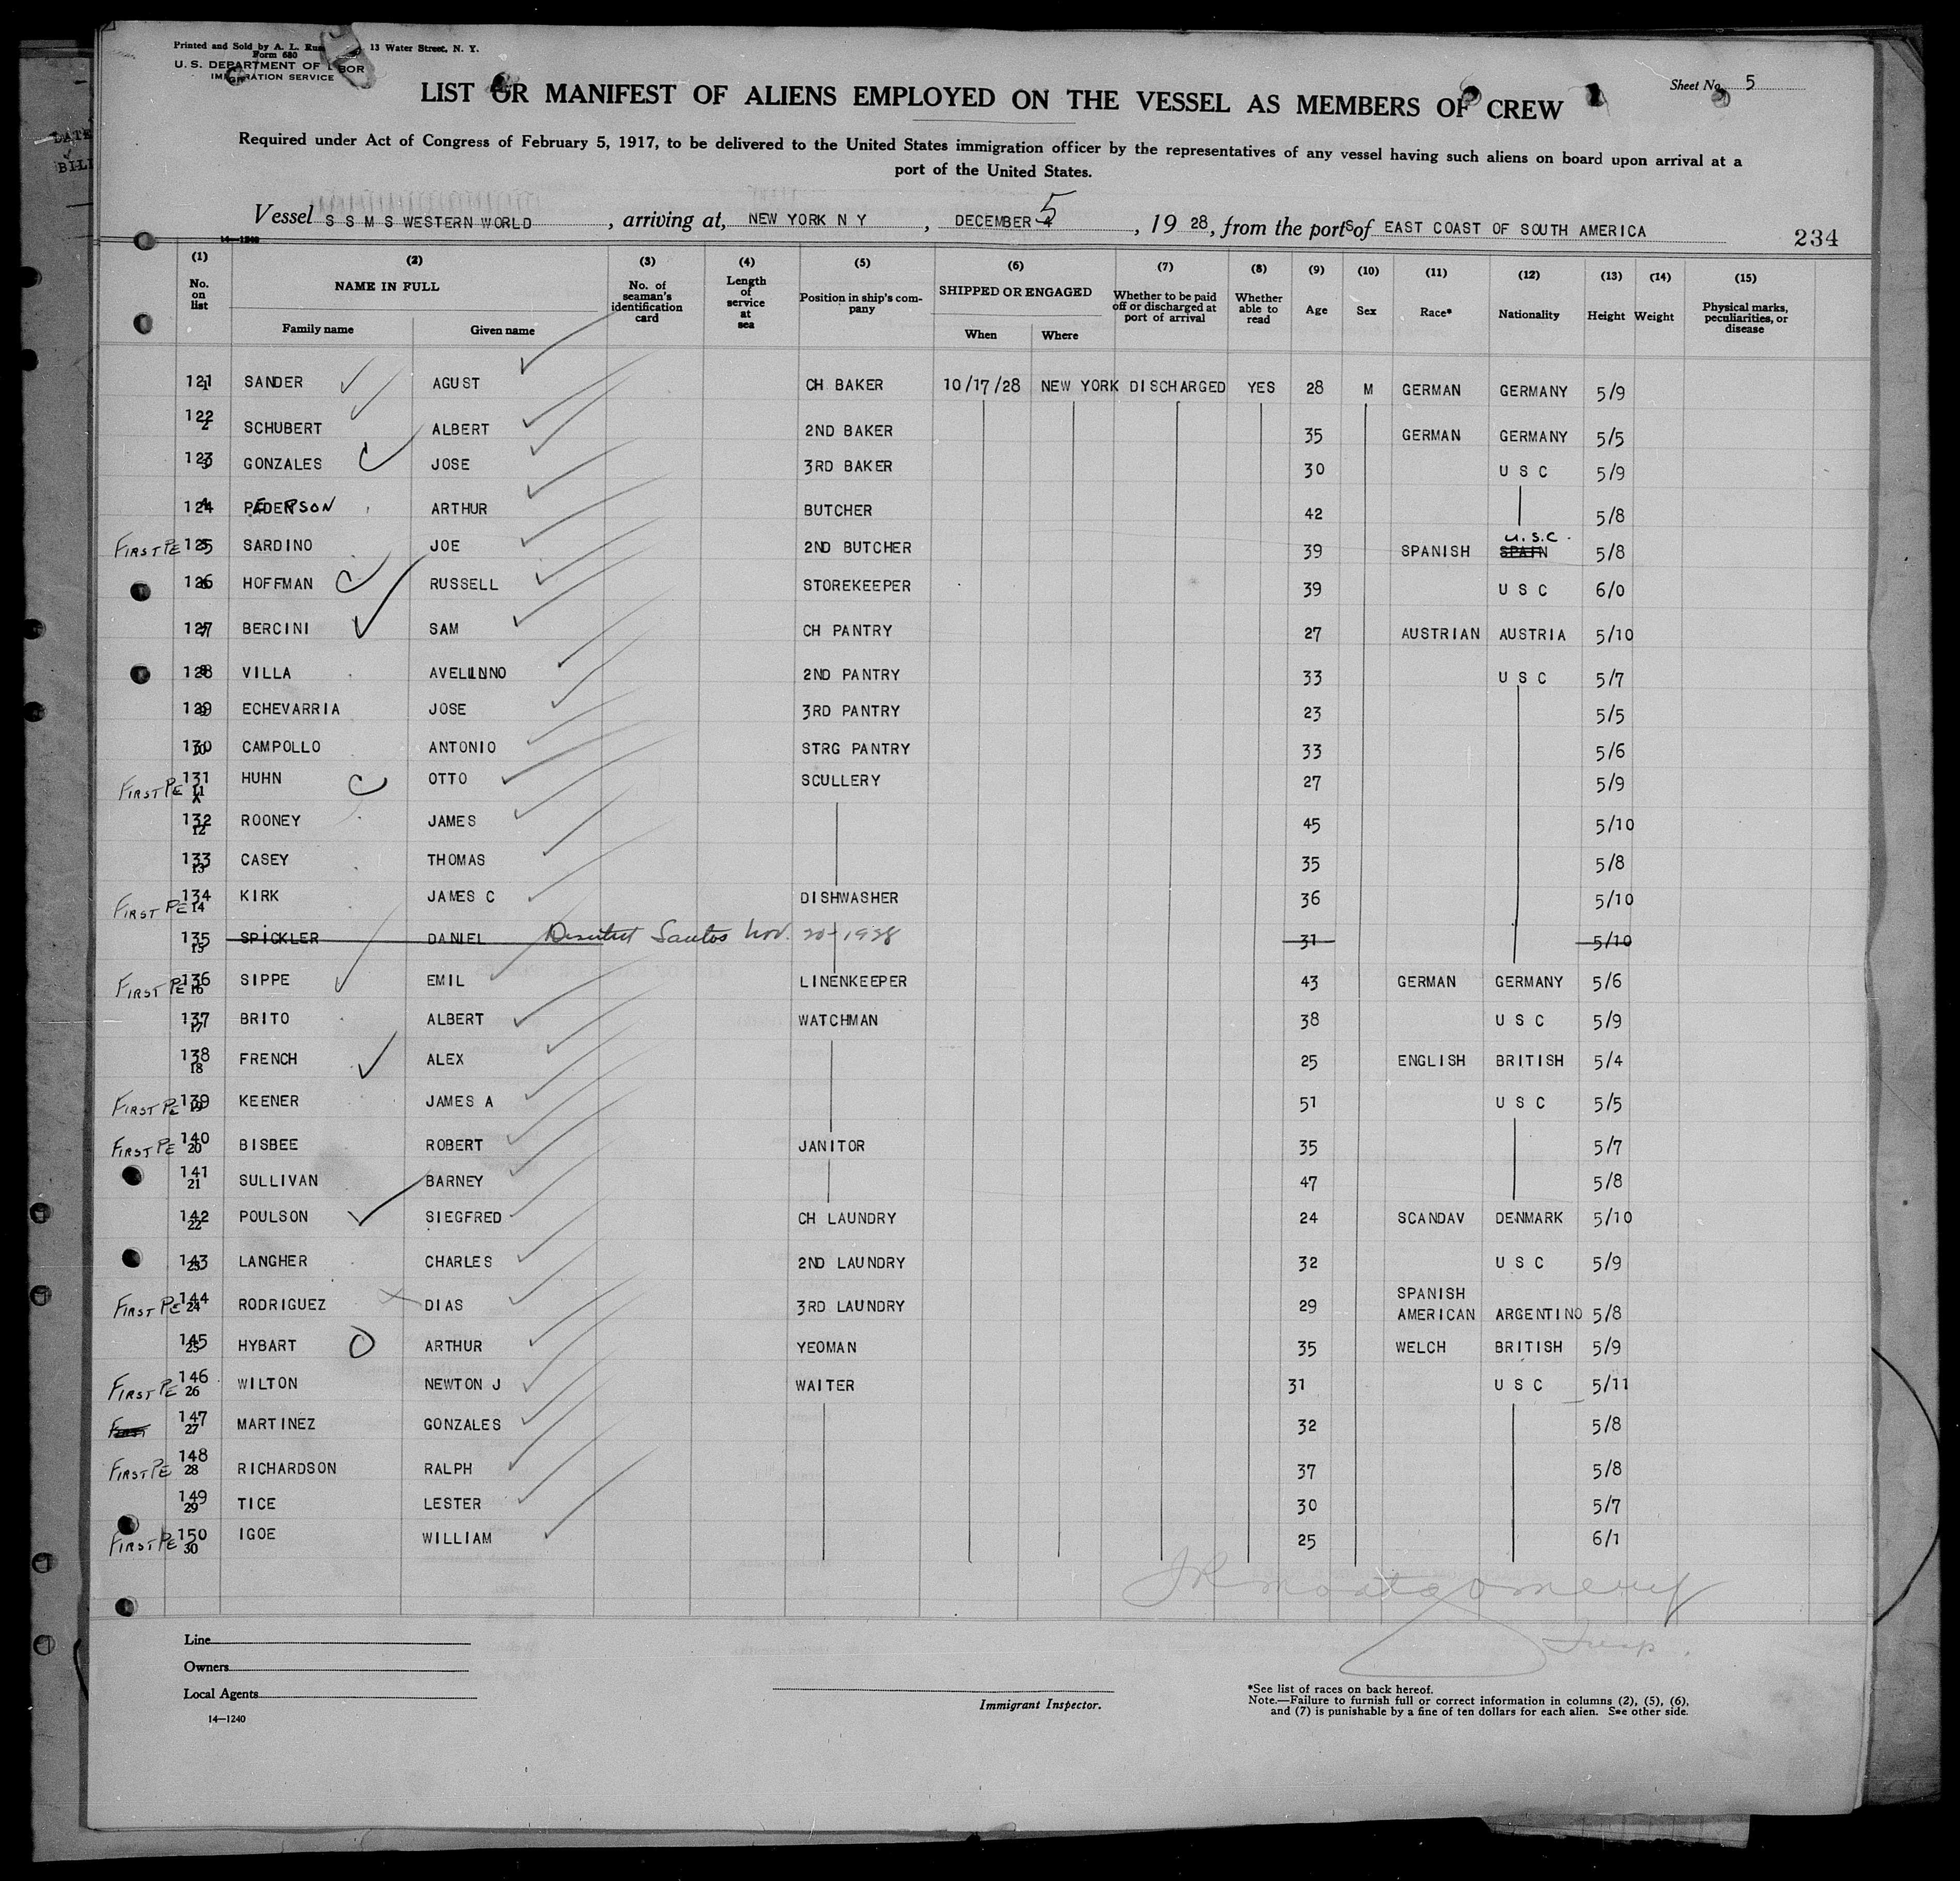 Printed and Sold by A. L. 13 Water Street, N. Y.
Form 680
U. S. DEPARTMENT OF LABOR
IMMIGRATION SERVICE
Sheet No. 5
LIST OR MANIFEST OF ALIENS EMPLOYED ON THE VESSEL AS MEMBERS OF CREW
Required under Act of Congress of February 5, 1917, to be delivered to the United States immigration officer by the representatives of any vessel having such aliens on board upon arrival at a
port of the United States.
Vessel S S M S WESTERN WORLD, arriving at, NEW YORK N Y, DECEMBER 5, 1928, from the portS of EAST COAST OF SOUTH AMERICA
14—1240
234
(1) (2) (3) (4) (5) (6) (7) (8) (9) (10) (11) (12) (13) (14) (15)
No. on list NAME IN FULL Family name Given name No. of seaman's identification card Length of service at sea Position in ship's company SHIPPED OR ENGAGED When Where Whether to be paid off or discharged at port of arrival Whether able to read Age Sex Race* Nationality Height Weight Physical marks, peculiarities, or disease
121 1 SANDER AGUST CH BAKER 10/17/28 NEW YORK DISCHARGED YES 28 M GERMAN GERMANY 5/9
122 2 SCHUBERT ALBERT 2ND BAKER 35 GERMAN GERMANY 5/5
123 3 GONZALES JOSE 3RD BAKER 30 U S C 5/9
124 4 PEDERSON ARTHUR BUTCHER 42 5/8
FIRST PE 125 5 SARDINO JOE 2ND BUTCHER 39 SPANISH SPAIN U.S.C. 5/8
126 6 HOFFMAN RUSSELL STOREKEEPER 39 U S C 6/0
127 7 BERCINI SAM CH PANTRY 27 AUSTRIAN AUSTRIA 5/10
128 8 VILLA AVELINNO 2ND PANTRY 33 U S C 5/7
129 9 ECHEVARRIA JOSE 3RD PANTRY 23 5/5
130 10 CAMPOLLO ANTONIO STRG PANTRY 33 5/6
FIRST PE 131 11 HUHN OTTO SCULLERY 27 5/9
132 12 ROONEY JAMES 45 5/10
133 13 CASEY THOMAS 35 5/8
FIRST PE 134 14 KIRK JAMES C DISHWASHER 36 5/10
135 15 SPICKLER DANIEL Santos Nov. 20-1928 31 5/10
FIRST PE 136 16 SIPPE EMIL LINENKEEPER 43 GERMAN GERMANY 5/6
137 17 BRITO ALBERT WATCHMAN 38 U S C 5/9
138 18 FRENCH ALEX 25 ENGLISH BRITISH 5/4
FIRST PE 139 19 KEENER JAMES A 51 U S C 5/5
FIRST PE 140 20 BISBEE ROBERT JANITOR 35 5/7
141 21 SULLIVAN BARNEY 47 5/8
142 22 POULSON SIEGFRED CH LAUNDRY 24 SCANDAV DENMARK 5/10
143 23 LANGHER CHARLES 2ND LAUNDRY 32 U S C 5/9
FIRST PE 144 24 RODRIGUEZ DIAS 3RD LAUNDRY 29 SPANISH AMERICAN ARGENTINO 5/8
145 25 HYBART ARTHUR YEOMAN 35 WELCH BRITISH 5/9
FIRST PE 146 26 WILTON NEWTON J WAITER 31 U S C 5/11
FIRST 147 27 MARTINEZ GONZALES 32 5/8
FIRST PE 148 28 RICHARDSON RALPH 37 5/8
149 29 TICE LESTER 30 5/7
FIRST PE 150 30 IGOE WILLIAM 25 6/1
JR Montgomery
Insp.
Line
Owners
Local Agents
14—1240
Immigrant Inspector.
*See list of races on back hereof.
Note.—Failure to furnish full or correct information in columns (2), (5), (6),
and (7) is punishable by a fine of ten dollars for each alien. See other side.